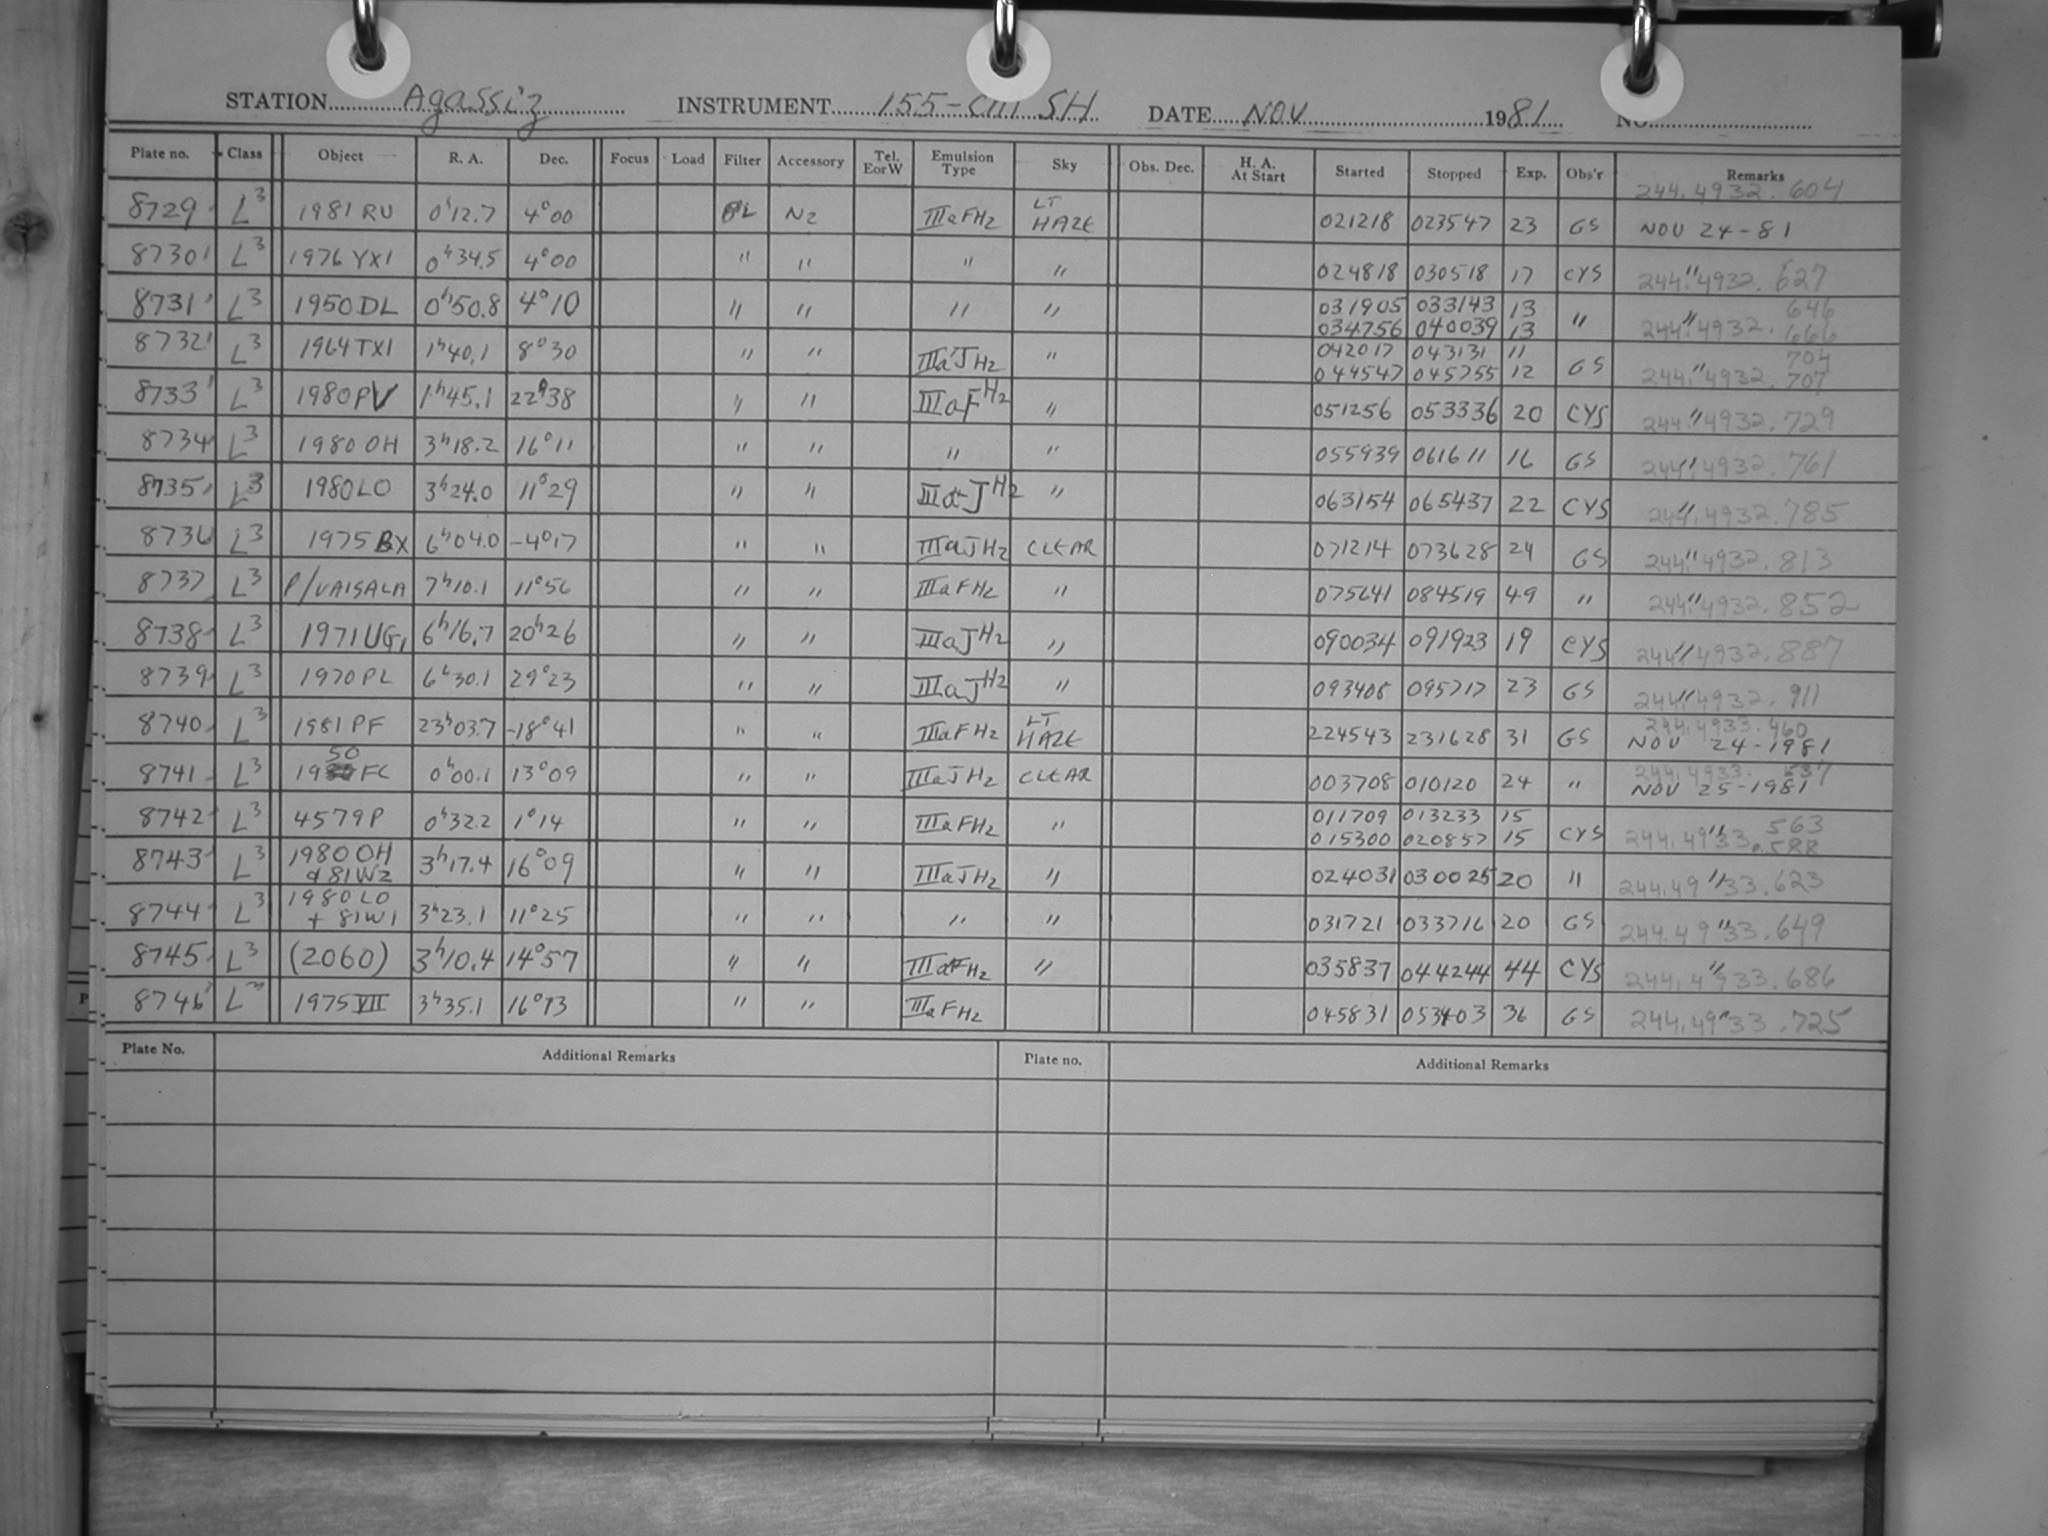 STATION Agassiz INSTRUMENT 155-cm SH DATE NOV 1981 NO.
Plate no. Class Object R. A. Dec. Focus Load Filter Accessory Tel. EorW Emulsion Type Sky Obs. Dec. H. A. At Start Started Stopped Exp. Obs'r Remarks
244.4932.604
8729 L3 1981 RU 0h12.7 4°00 N2 IIIaFH2 LT HAZE 021218 023547 23 GS NOV 24-81
8730 L3 1976 YX1 0h34.5 4°00 " " " " 024818 030518 17 CYS " 244.4932.627
8731 L3 1950 DL 0h50.8 4°10 " " " " 031905 033143 13 " " 646
034756 040039 13 244.4932.666
8732 L3 1964 TX1 1h40.1 8°30 " " IIIaJH2 " 042017 043131 11 GS " 704
044547 045755 12 244.4932.707
8733 L3 1980 PV 1h45.1 22°38 " " IIIaFH2 " 051256 053336 20 CYS " 244.4932.729
8734 L3 1980 OH 3h18.2 16°11 " " " " 055939 061611 16 GS " 244.4932.761
8735 L3 1980 LO 3h24.0 11°29 " " IIIa-JH2 " 063154 065437 22 CYS " 244.4932.785
8736 L3 1975 BX 6h04.0 -4°17 " " IIIaJH2 CLEAR 071214 073628 24 GS " 244.4932.813
8737 L3 P/VAISALA 7h10.1 11°56 " " IIIaFH2 " 075641 084519 49 " " 244.4932.852
8738 L3 1971 UG1 6h16.7 20h26 " " IIIaJH2 " 090034 091923 19 CYS " 244.4932.887
8739 L3 1970 PL 6h30.1 29°23 " " IIIaJH2 " 093408 095717 23 GS " 244.4932.911
8740 L3 1981 PF 23h03.7 -18°41 " " IIIaFH2 LT HAZE 224543 231628 31 GS 244.4933.460
NOV 24-1981
8741 L3 1950 FC 0h00.1 13°09 " " IIIaJH2 CLEAR 003708 010120 24 " 244.4933.537
NOV 25-1981
8742 L3 4579 P 0h32.2 1°14 " " IIIaFH2 " 011709 013233 15 CYS " 563
015300 020857 15 244.4933.588
8743 L3 1980 OH & 81W2 3h17.4 16°09 " " IIIaJH2 " 024031 030025 20 " " 244.4933.623
8744 L3 1980 LO + 81W1 3h23.1 11°25 " " " " 031721 033716 20 GS " 244.4933.649
8745 L3 (2060) 3h10.4 14°57 " " IIIaFH2 " 035837 044244 44 CYS " 244.4933.686
8746 L3 1975 VII 3h35.1 16°13 " " IIIaFH2 045831 053403 36 GS " 244.4933.725
Plate No. Additional Remarks Plate no. Additional Remarks